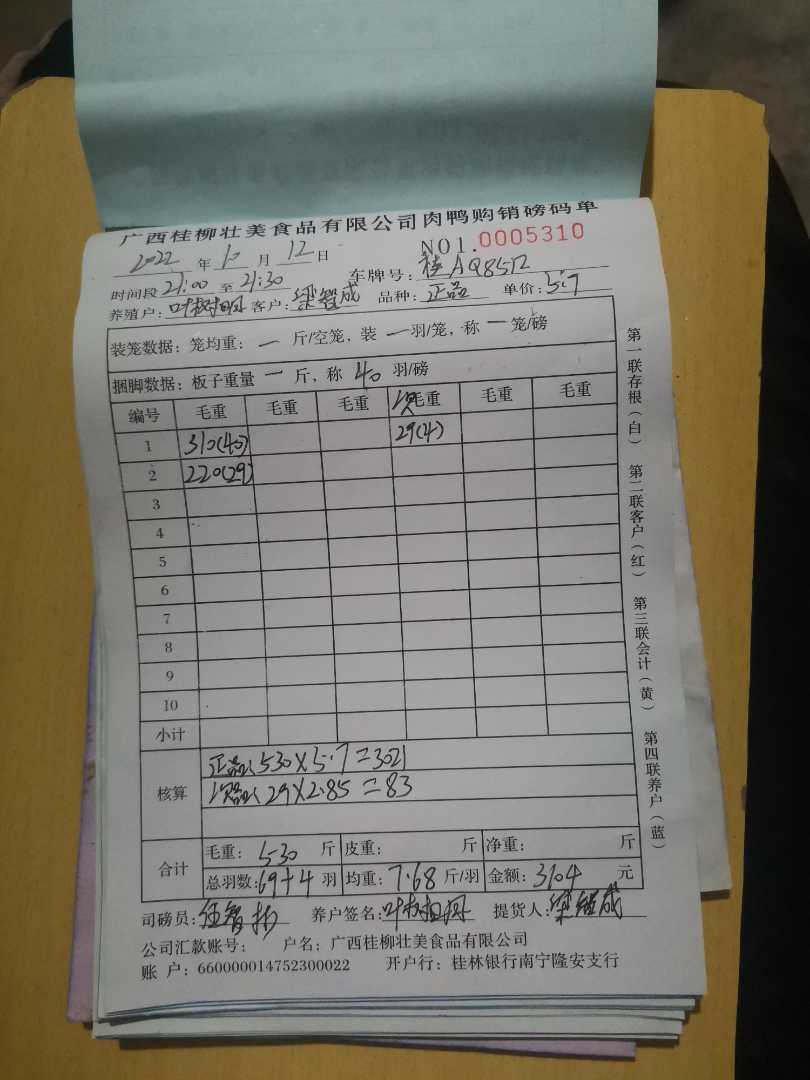 广西桂柳壮美食品有限公司肉鸭购销磅码单
2022 年 10 月 12 日 NO1.0005310
时间段 21:00 至 21:30 车牌号: 桂A
养殖户: 客户: 梁智成 品种: 正品 单价: 5.7
装笼数据: 笼均重: 一 斤/空笼, 装 一 羽/笼, 称 一 笼/磅
捆脚数据: 板子重量 一 斤, 称 40 羽/磅
编号 毛重 毛重 毛重 次毛重 毛重 毛重
1 310(40) 29(4)
2 220(29)
3
4
5
6
7
8
9
10
小计
核算 正品: 530×5.7=3021
次品: 29×2.85=83
合计 毛重: 530 斤 皮重: 斤 净重: 斤
总羽数: 69+4 羽 均重: 7.68 斤/羽 金额: 3104 元
司磅员: 养户签名: 提货人: 梁智成
公司汇款账号: 户名: 广西桂柳壮美食品有限公司
账 户: 660000014752300022 开户行: 桂林银行南宁隆安支行
第一联存根(白) 第二联客户(红) 第三联会计(黄) 第四联养户(蓝)